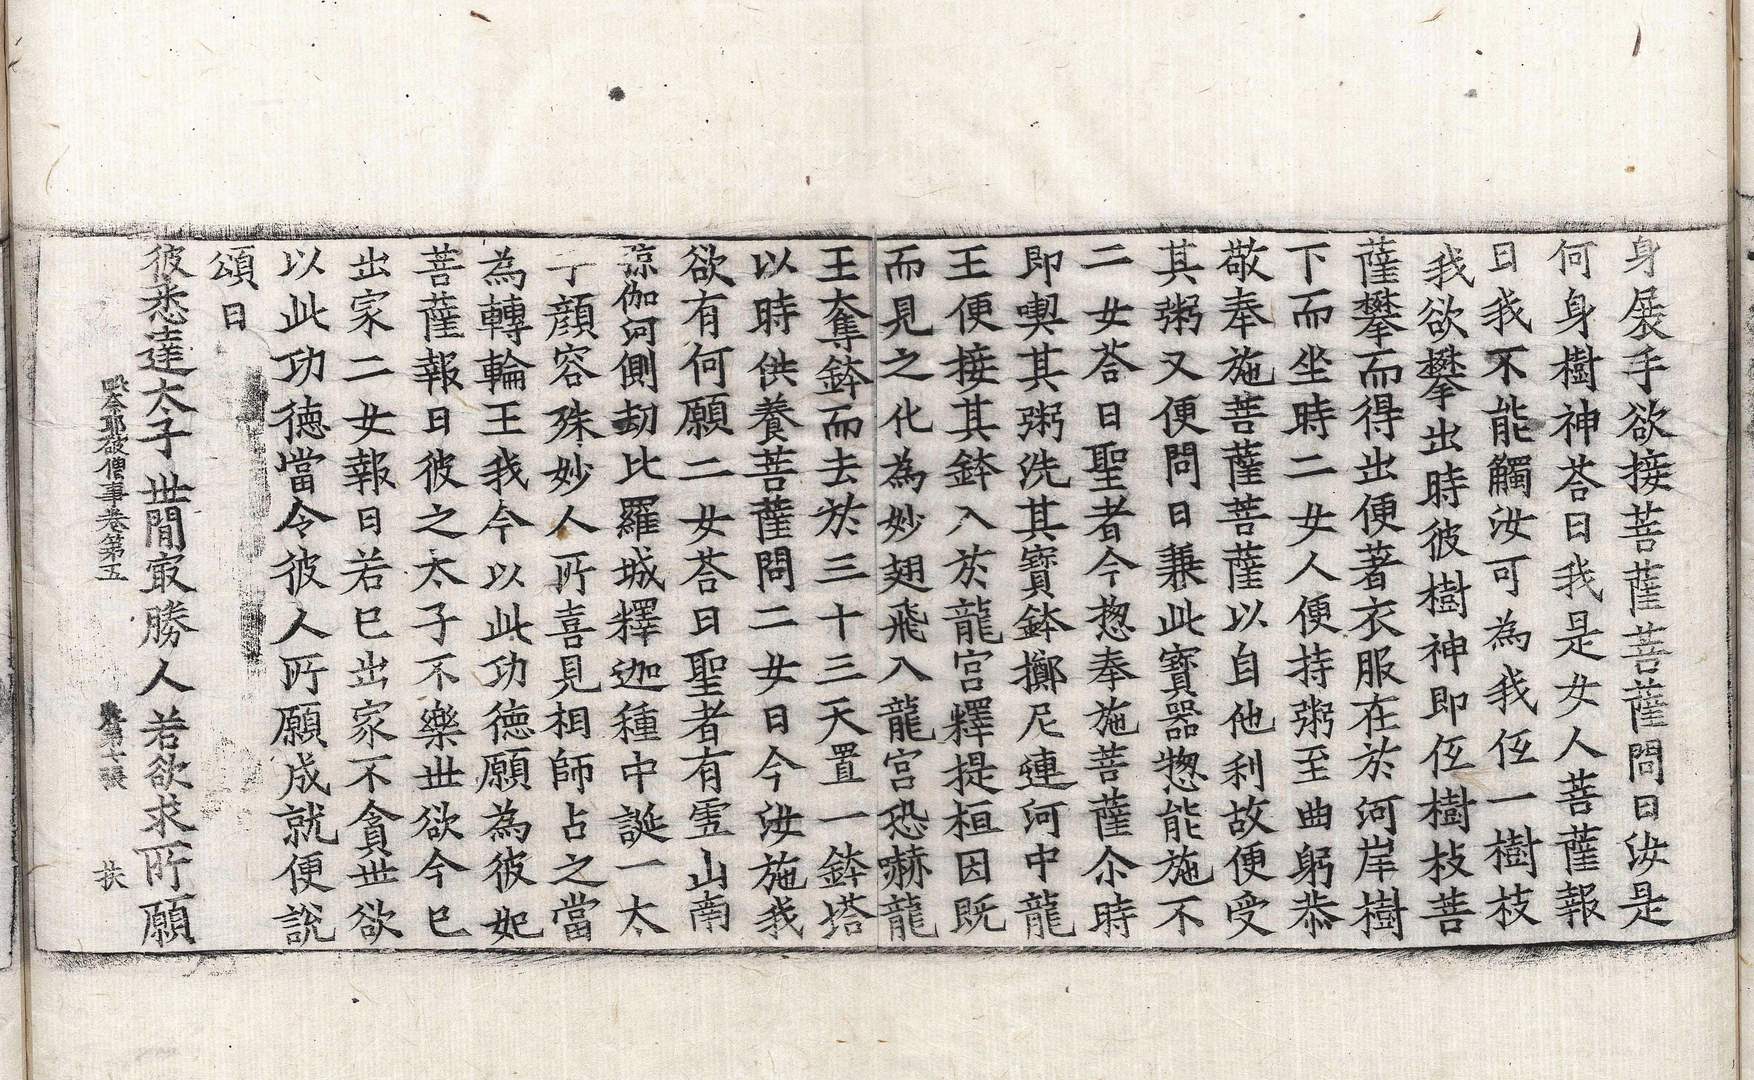 身展手欲接菩薩菩薩問曰汝是
何身樹神荅曰我是女人菩薩報
曰我不能觸汝可為我低一樹枝
我欲攀出時彼樹神即低樹枝菩
薩攀而得出便著衣服在於河岸樹
下而坐時二女人便持粥至曲躬恭
敬奉施菩薩菩薩以自他利故便受
其粥又便問曰兼此寶器惣能施不
二女荅曰聖者今惣奉施菩薩尒時
即喫其粥洗其寶鉢擲尼連河中龍
王便接其鉢入於龍宮釋提桓因既
而見之化為妙翅飛入龍宮恐嚇龍
王奪鉢而去於三十三天置一鉢塔
以時供養菩薩問二女曰今汝施我
欲有何願二女荅曰聖者有雪山南
弶伽河側劫比羅城釋迦種中誕一太
子顔容殊妙人所喜見相師占之當
為轉輪王我今以此功德願為彼妃
菩薩報曰彼之太子不樂丗欲今已
出家二女報曰若已出家不貪丗欲
以此功德當令彼人所願成就便說
頌曰
彼悉達太子 丗間㝡勝人 若欲求所願
耶破僧事卷第五 第十張 扶